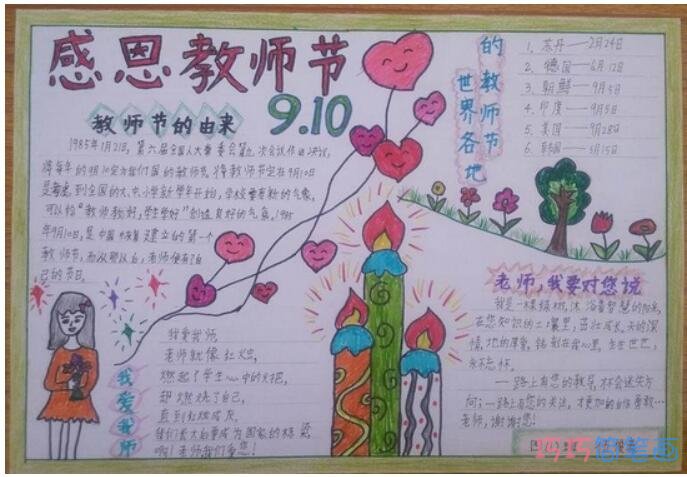 感恩教师节
9.10
教师节的由来
1985年1月21日，第六届全国人大常委会第九次会议作出决议，
将每年的9月10定为我们国的教师节，将教师节定在9月10日
是考虑到全国的大、中小学新学年开始，学校要有新的气象，
可以给"教师教好，学生学好"创造良好的气氛。1985
年9月10日，是中国恢复建立的第一个
教师节，而从那以后，老师便有了自
己的节日。
世界各地
的教师节
1、苏丹——2月24日
2、德国——6月12日
3、朝鲜——9月5日
4、印度——9月5日
5、美国——9月28日
6、韩国——5月15日
老师，我要对您说
我是一棵绿树，沐浴着智慧的阳光，
在您知识的土壤里，茁壮成长。天的深
情，地的厚爱，铭刻在我心里，生生世世，
永不忘怀。
——一路上有您的教导，才会迷失方
向；一路上有您的关注，才更加的自信勇敢……
老师，谢谢您！
我爱我师
我爱我师
老师就像红烛，
燃起了学生心中的火把，
却燃烧了自己，
直到红烛成灰，
我们长大后要成为国家的栋梁
啊！老师我们爱您！
巧巧简笔画